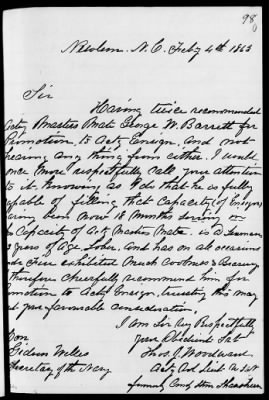 98
Newbern. N.C. Feby 4th 1863
Sir
Having twice recommended
Acty Masters Mate George W. Barrett for
Promotion to Acty Ensign. And not
hearing any thing from either. I would
once more respectfully call your attention
to it. Knowing as I do that he is fully
capable of filling that Capacity (of Ensign)
having been now 18 months serving in
Capacity of Act Masters Mate. is a Seaman
years of Age. Sober. And has on all occasions
exhibited much Coolness & Bravery
therefore cheerfully recommend him for
promotion to Acty Ensign, trusting this may
favorable consideration,
I am Sir Very Respectfully
your Obedient Svt
Thos. J. Woodward
Acty Vol Lieut U.S.N
formerly Comdg Stmr
Hon
Gideon Welles
Secretary of the Navy